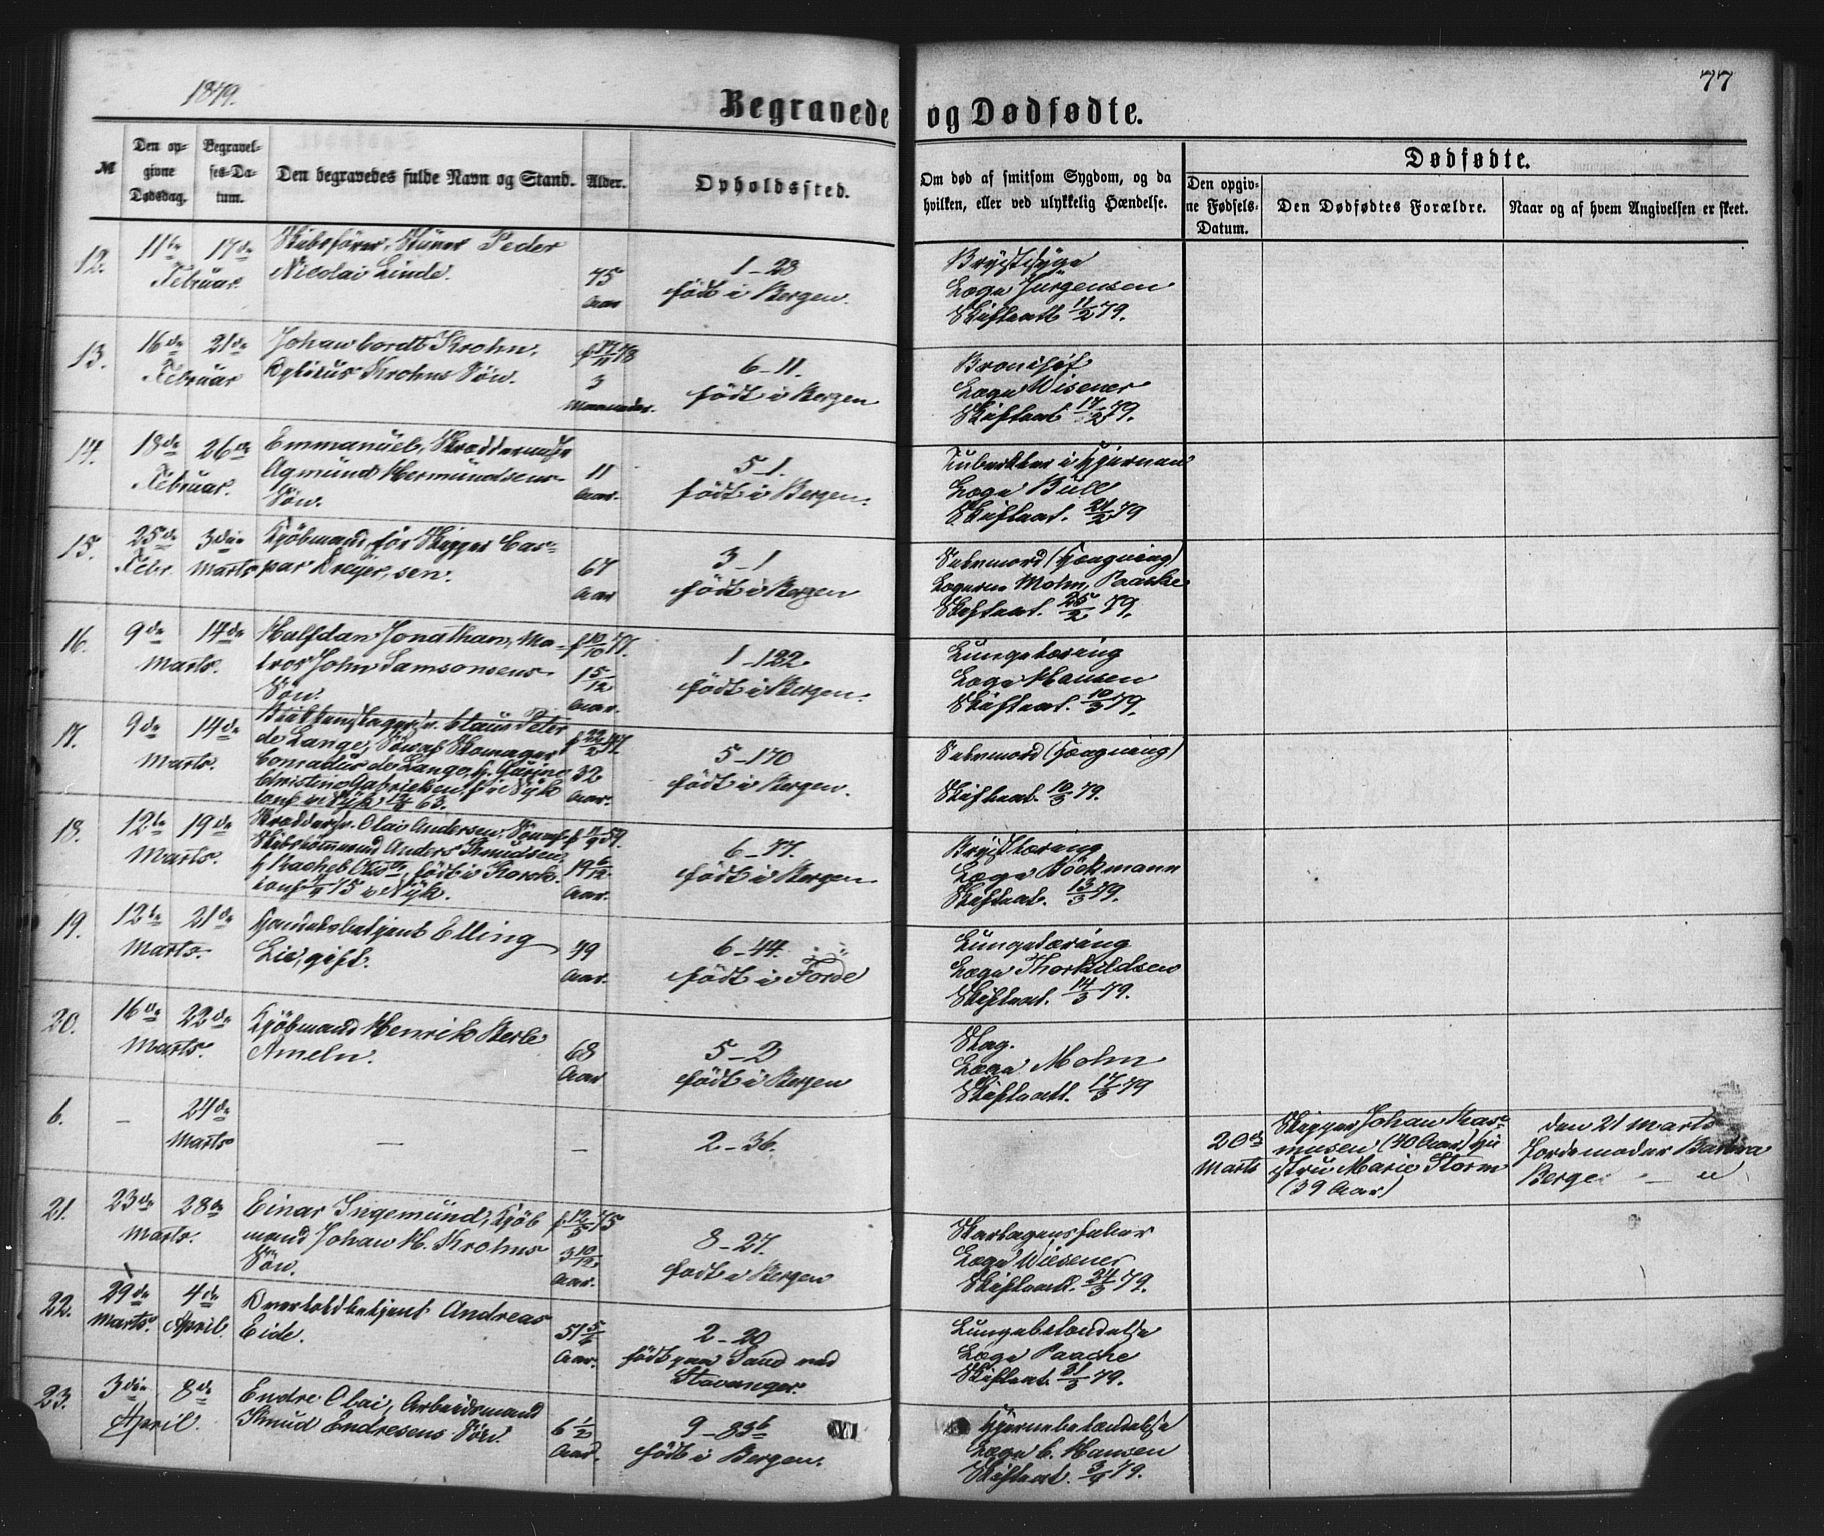 1879.
77
Begravede og Dødfødte.
№
Den opgivne Dødsdag.
Begravelses-Datum.
Den begravedes fulde Navn og Stand.
Alder.
Opholdssted.
Om død af smitsom Sygdom, og da
hvilken, eller ved ulykkelig Hændelse.
Dødfødte.
Den opgivne Fødsels-Datum.
Den Dødfødtes Forældre.
Naar og af hvem Angivelsen er skeet.
12.
11te 17de
Februar.
Peder
Nicolai Linde.
75
Aar
1–23
født i Bergen.
Brystsyge
Læge Jürgensen
Skifteatt 11/2 79.
13.
16de 21de
Februar
Johan Cordt Krohn,
Krohns Søn.
3
Maaneder.
6–11.
født i Bergen
Læge Wisener
Skifteatt 17/2 79.
14.
18de 26de
Februar.
Emmanuel, Skræddermester
Agmund Hermundsens
Søn.
11
Aar.
5–1.
født i Bergen.
Tuberkler i Hjernen
Læge Bull
Skifteatt. 21/2 79
15.
25de 3die
Febr. Marts
Kjøbmand før Skipper Cas-
par Dreyer, sen.
67
Aar
3–1
født i Bergen
Selvmord (Hængning)
Lægerne Mohn, Paasche
Skifteatt. 25/2 79.
16.
9de 14de
Marts.
Halfdan Jonathan, Ma-
tros John Samsonsens
Søn.
f 10/10 77.
1 5/12
Aar.
1–122
født i Bergen.
Lungetæring
Læge Hansen
Skifteatt. 10/3 79.
17.
9de 14de
Marts.
Claus Peter
de Lange, Søn af Skomager
Conradus de Lange,
Christine Gabrielsen,
32
Aar.
5–170
født i Bergen.
Selvmord (Hængning)
Skifteatt. 10/3 79.
18.
12te 19de
Marts.
Olai Andersen, Søn af
Skibstømmermand Anders Knudsen,
født i
i Nyk.
19 6/12
Aar.
6–77.
født i Bergen
Brysttæring
Læge Böckmann
Skifteatt. 13/3 79.
19.
12te 21de
Marts.
Handelsbetjent Elling
Lie, gift.
49
Aar.
6–44.
født i Førde
Lungetæring
Læge Thorkildsen
Skifteatt. 14/3 79.
20.
16de 22de
Marts.
Kjøbmand Henrik Kerle
Ameln.
68
Aar
5–2
født i Bergen
Slag.
Læge Mohn
Skifteatt. 17/3 79
6.
–
24de
Marts
—
–
2–36.
20de
Marts
Skipper Johan Ras-
musen (40 Aar) Hu
stru Marie Storm
(39 Aar)
den 21 Marts
Jordemoder
Berge
21.
23de 28de
Marts.
Einar Ingemund, Kjøb
mand Johan H. Krohns
Søn.
f. 12/5 75
3 10/12
Aar.
8–27.
født i Bergen
Skarlagensfeber
Læge Wiesener
Skifteatt. 24/3 79.
22.
29de 4de
Marts. April.
Overtoldbetjent Andreas
Eide.
51 5/6
Aar.
2–20
født paa Sand ved
Stavanger.
Lungebetændelse
Læge Paasche
Skifteatt. 31/3 79.
23.
3die 8de
April.
Endre Olai, Arbeidsmand
Knud Endresens Søn.
6 1/2
Aar.
9–83b
født i Bergen.
Hjernebetændelse
Læge C. Hansen
Skifteatt. 3/4 79.